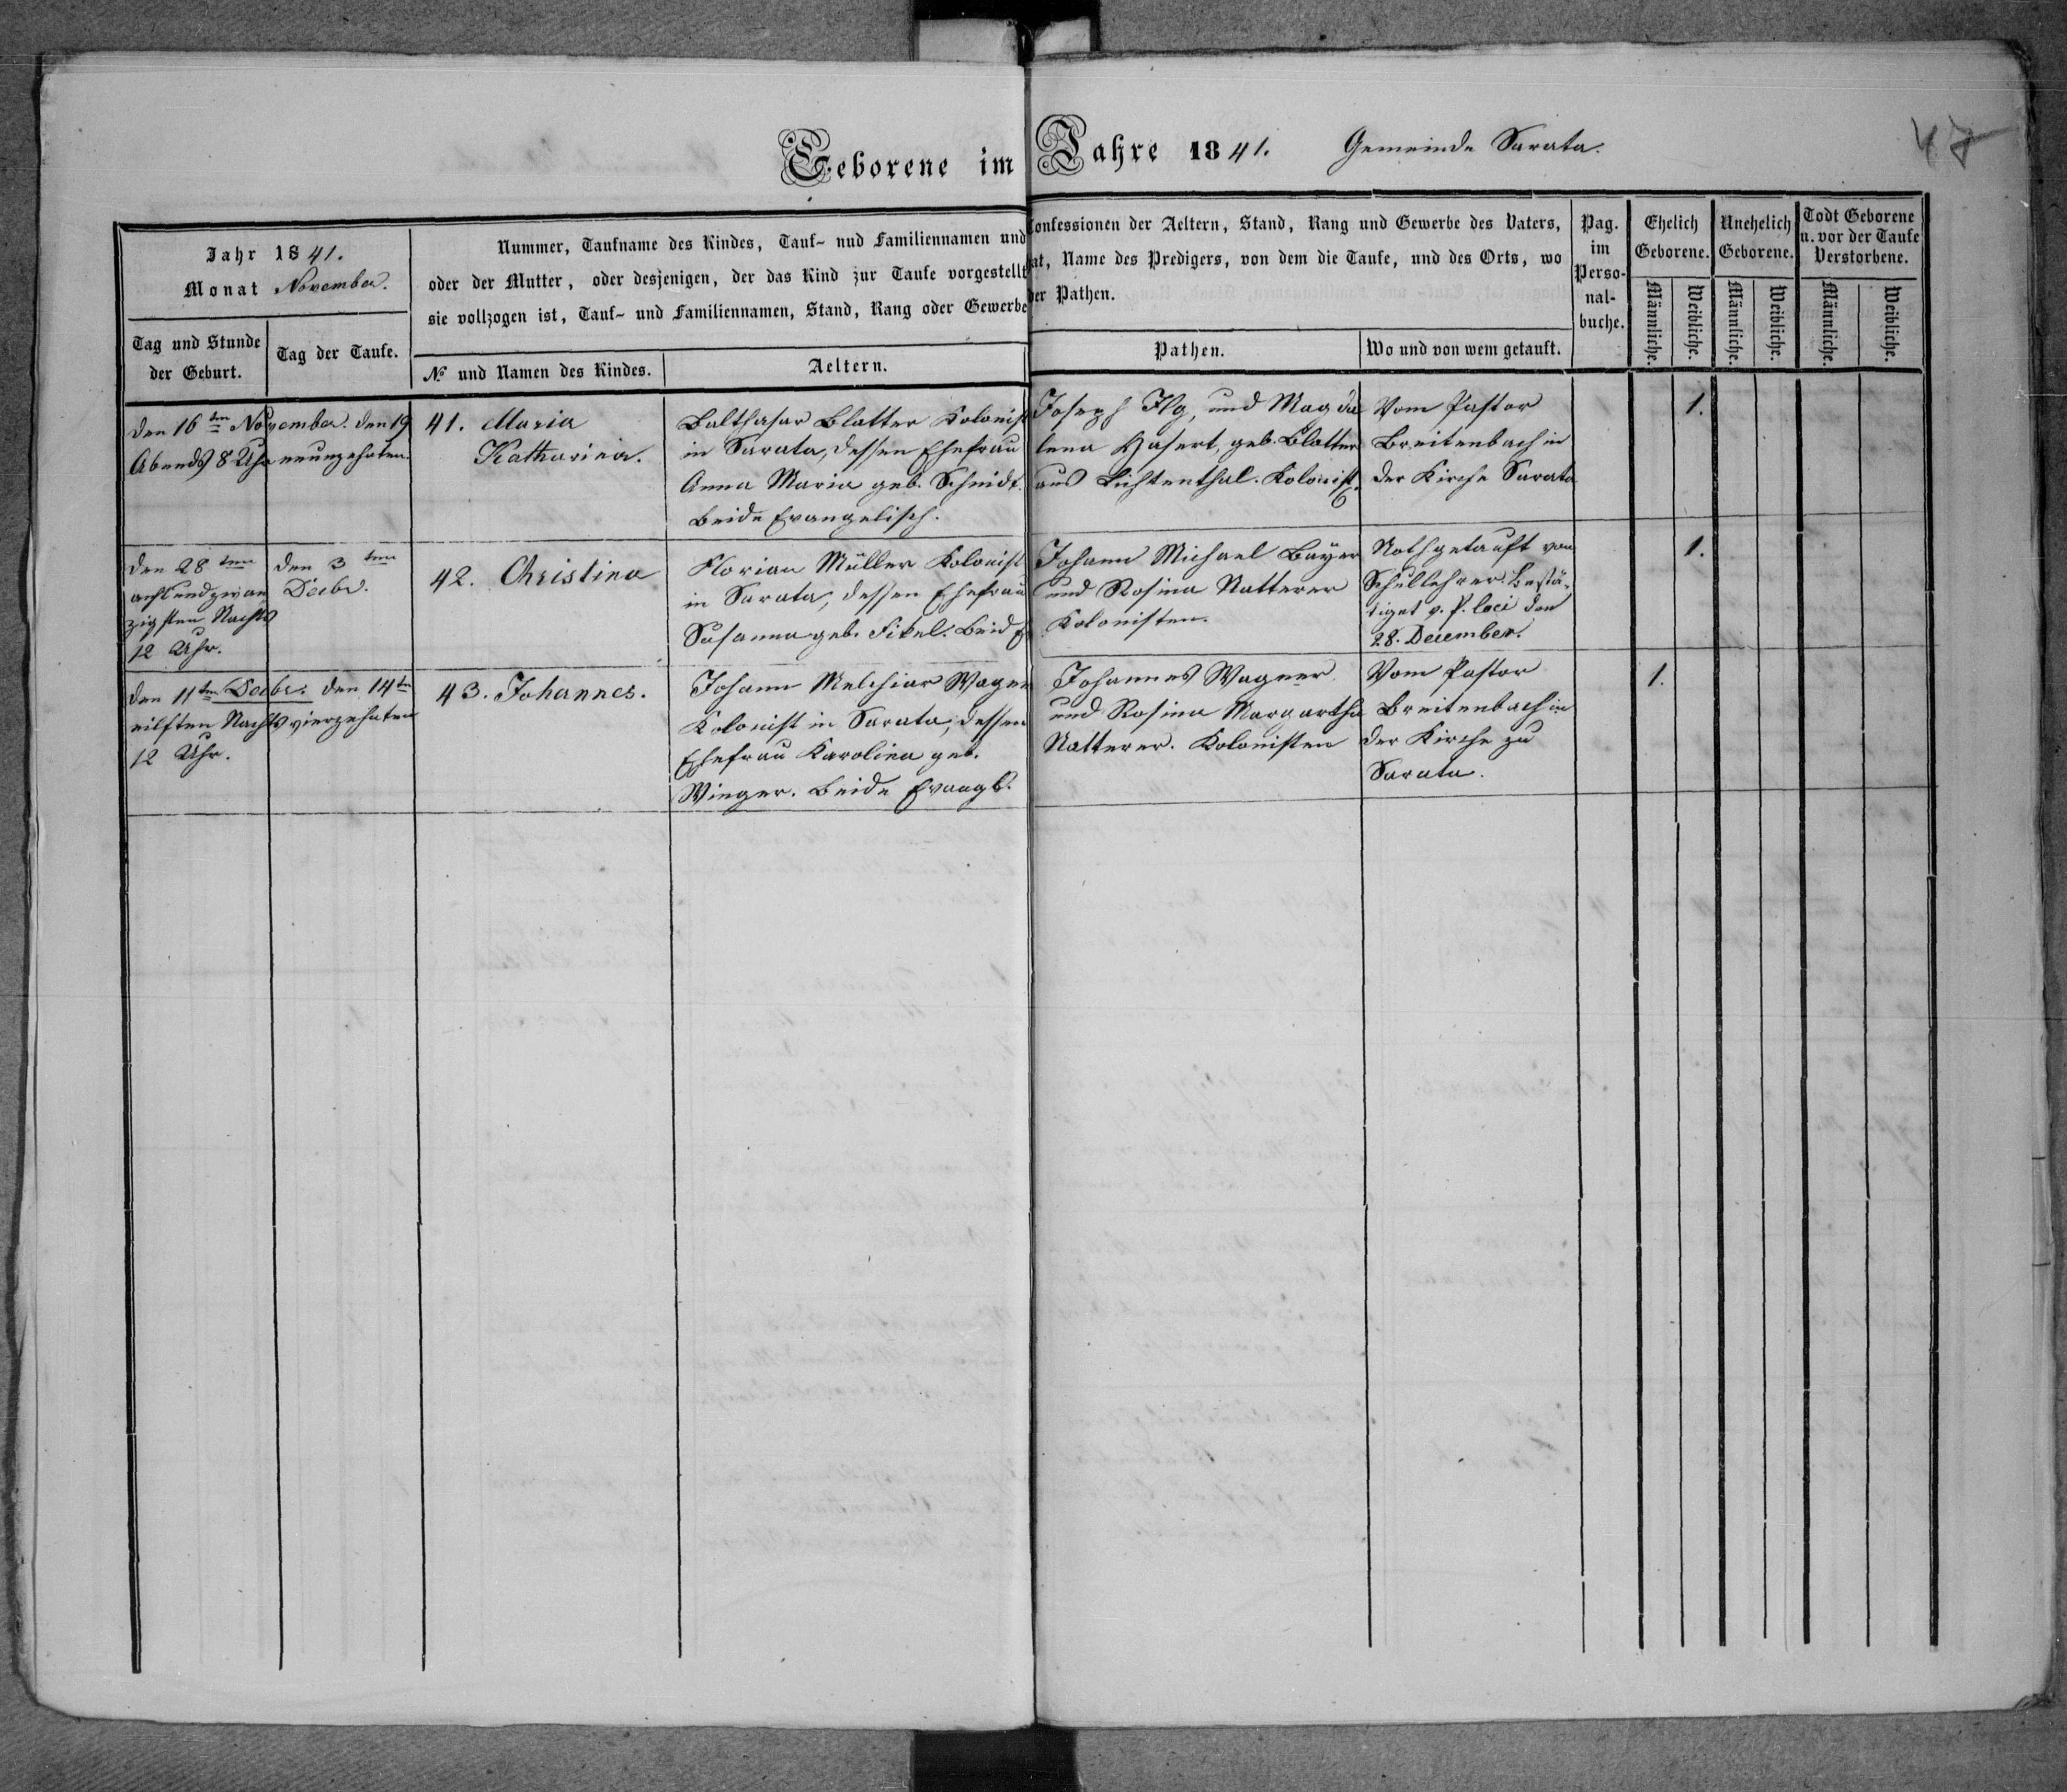 Geborene im Jahre 1841. Gemeinde Sarata.
47
Jahr 1841.
Monat November.
Tag und Stunde
der Geburt.
Tag der Taufe.
Nummer, Taufname des Kindes, Tauf- nud Familiennamen und
oder der Mutter, oder desjenigen, der das Kind zur Taufe vorgestellt
sie vollzogen ist, Tauf- und Familiennamen, Stand, Rang oder Gewerbe
№ und Namen des Kindes.
Aeltern.
Confessionen der Aeltern, Stand, Rang und Gewerbe des Vaters,
hat, Name des Predigers, von dem die Taufe, und des Orts, wo
der Pathen.
Pathen.
Wo und von wem getauft.
Pag.
im
Perso-
nal-
buche.
Ehelich
Geborene.
Männliche.
Weibliche.
Unehelich
Geborene.
Männliche.
Weibliche.
Todt Geborene
u. vor der Taufe
Verstorbene.
Männliche.
Weibliche.
Den 16ten November.
Abends 8 Uhr
den 19
neunzehnten.
41. Maria
Katharina.
Balthasar Blatter Kolonist
in Sarata, dessen Ehefrau
Anna Maria geb. Schmidt.
Beide Evangelisch.
Joseph Ilg, und Magda
lena Hasert, geb. Blatter
aus Lichtenthal. Kolonist.
Vom Pastor
Breitenbach in
der Kirche Sarata
1.
Den 28ten
acht und zwan
zigsten Nachts
12 Uhr.
Den 3ten
Decbr.
42. Christina
Florian Müller Kolonist
in Sarata, dessen Ehefrau
Susanna geb. Fikel. Beid
Johann Michael Bayer
und Rosina Natterer
Kolonisten.
Nothgetauft von
Schullehrer. Bestä-
tiget v. P. loci den
28. December.
1.
Den 11ten Decbr.
eilften Nachts
12 Uhr.
Den 14ten
vierzehnten
43. Johannes.
Johann Melchior Wagner
Kolonist in Sarata, dessen
Ehefrau Karolina geb.
Winger. Beide Evangl.
Johannes Wagner.
und Rosina Margartha
Natterer. Kolonisten
Vom Pastor
Breitenbach in
der Kirche zu
Sarata.
1.